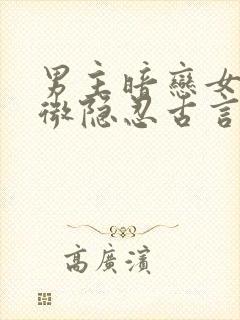 男主暗戀女
微隐忍古言
高廣濱